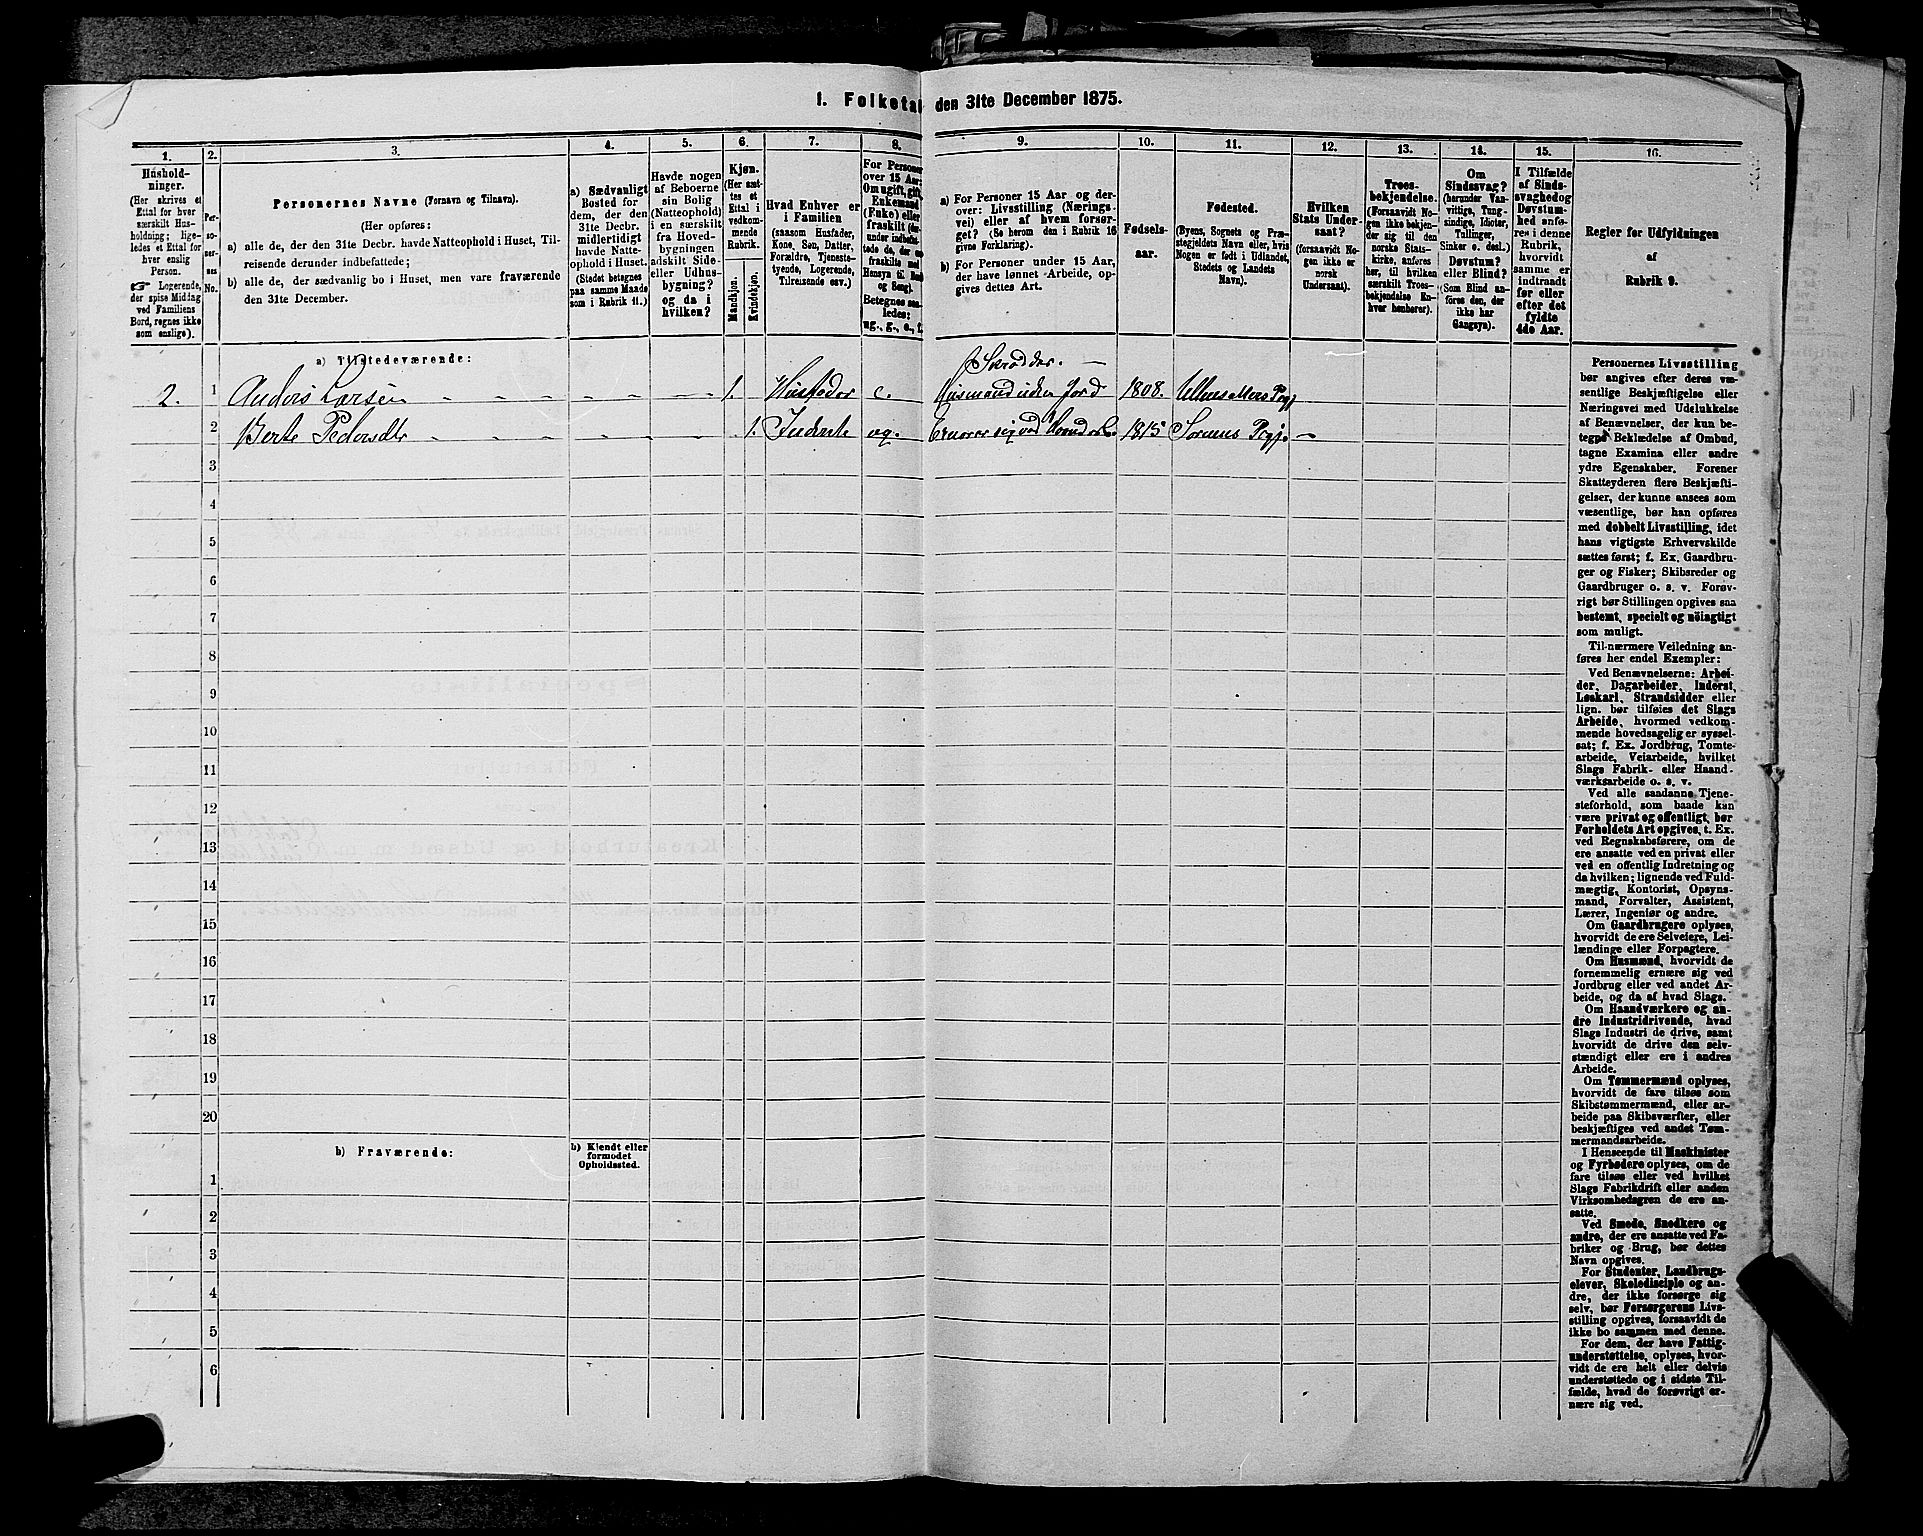 1. Folketal den 31te December 1875.
1. 2. 3. 4. 5. 6. 7. 8. 9. 10. 11. 12. 13. 14. 15. 16.
Husholdninger.
(Her skrives et
Ettal for hver
særskilt Hus-
holdning; lige-
ledes et Ettal for
hver enslig
Person.
Logerende,
der spise Middag
ved Familiens
Bord, regnes ikke
som enslige).
Per-
so-
ner-
nes
No.
Personernes Navne (Fornavn og Tilnavn).
(Her opføres:
a) alle de, der den 31te Decbr. havde Natteophold i Huset, Til-
reisende derunder indbefattede;
b) alle de, der sædvanlig bo i Huset, men vare fraværende
den 31te December.
a) Sædvanligt
Bosted for
dem, der den
31te Decbr.
midlertidigt
havde Natte-
ophold i Huset.
(Stedet betegnes
paa samme Maade
som i Rubrik 11.)
Havde nogen
af Beboerne
sin Bolig
(Natteophold)
i en særskilt
fra Hoved-
bygningen
adskilt Side-
eller Udhus-
bygning?
og da i
hvilken?
Kjøn.
(Her sæt-
tes et
Ettal i
vedkom-
mende
Rubrik.
Mandkjøn.
Kvindekjøn.
Hvad Enhver er
i Familien
(saasom Husfader,
Kone, Søn, Datter,
Forældre, Tjeneste-
tyende, Logerende,
Tilreisende osv.)
For Personer
over 15 Aar:
Om ugift, gift,
Enkemand
(Enke) eller
fraskilt
Betegnes saa-
ledes:
ug., g., e., f.
a) For Personer 15 Aar og der-
over: Livsstilling (Nærings-
vei) eller af hvem forsør-
get? (Se herom den i Rubrik 16
givne Forklaring).
b) For Personer under 15 Aar,
der have lønnet Arbeide, op-
gives dettes Art.
Fødsels-
aar.
Fødested.
(Byens, Sognets og Præ-
stegjeldets Navn eller, hvis
Nogen er født i Udlandet,
Stedets og Landets
Navn).
Hvilken
Stats Under-
saat?
(forsaavidt No-
gen ikke er
norsk
Undersaat).
Troes-
bekjendelse.
(Forsaavidt No-
gen ikke bekjen-
der sig til den
norske Stats-
kirke, anføres
her, til hvilken
særskilt Troes-
bekjendelse En-
hver henhører).
Om
Sindssvag?
(herunder Van-
vittige, Tung-
sindige, Idioter,
Tullinger,
Sinker o. desl.)
Døvstum?
eller Blind?
(Som Blind an-
føres den, der
ikke har
Gangsyn).
I Tilfælde
af Sinds-
svaghed og
Døvstum-
hed anfø-
res i denne
Rubrik,
hvorvidt
samme er
indtraadt
før eller
efter det
fyldte
4de Aar.
Regler for Udfyldningen
af
Rubrik 9.
a) Tilstedeværende:
Skrædder.
2. 1 Anders Larsen 1. Husfader e. Husmand uden Jord 1808. Ullensakers Pgj
2 Berte Pedersdtr 1. Inderste ug. Ernærer sig ved 1815 Sørums Pgj.
3
4
5
6
7
8
9
10
11
12
13
14
15
16
17
18
19
20
b) Fraværende:
b) Kjendt eller
formodet
Opholdssted.
1
2
3
4
5
6
Personernes Livsstilling
bør angives efter deres væ-
sentlige Beskjæftigelse eller
Næringsvei med Udelukkelse
af Benævnelser, der kun be-
tegne Beklædelse af Ombud,
tagne Examina eller andre
ydre Egenskaber. Forener
Skatteyderen flere Beskjæfti-
gelser, der kunne ansees som
væsentlige, bør han opføres
med dobbelt Livsstilling, idet
hans vigtigste Erhvervskilde
sættes først; f. Ex. Gaardbru-
ger og Fisker; Skibsreder og
Gaardbruger o. s. v. Forøv-
rigt bør Stillingen opgives saa
bestemt, specielt og nöiagtigt
som muligt.
Til nærmere Veiledning an-
føres her endel Exempler:
Ved Benævnelserne: Arbei-
der, Dagarbeider, Inderst,
Løskarl, Strandsidder eller
lign. bør tilføies det Slags
Arbeide, hvormed vedkom-
mende hovedsagelig er syssel-
sat; f. Ex. Jordbrug, Tomte-
arbeide, Veiarbeide, hvilket
Slags Fabrik- eller Haand-
værksarbeide o. s. v.
Ved alle saadanne Tjene-
steforhold, som baade kan
være privat og offentligt, bør
Forholdets Art opgives, t. Ex.
ved Regnskabsførere, om de
ere ansatte ved en privat eller
ved en offentlig Indretning og
da hvilken; lignende ved Fuld-
mægtig, Kontorist, Opsyns-
mand, Forvalter, Assistent,
Lærer, Ingeniør og andre.
Om Gaardbrugere oplyses,
hvorvidt de ere Selveiere, Lei-
lændinge eller Forpagtere.
Om Husmænd, hvorvidt de
fornemmelig ernære sig ved
Jordbrug eller ved andet Ar-
beide, og da af hvad Slags.
Om Haandværkere og an-
dre Industridrivende, hvad
Slags Industri de drive, samt
hvorvidt de drive den selv-
stændigt eller ere i andres
Arbeide.
Om Tømmermænd oplyses,
hvorvidt de fare tilsøs som
Skibstømmermænd, eller ar-
beide paa Skibsværfter, eller
beskjæftiges ved andet Tøm-
mermandsarbeide.
I Henseende til Maskinister
og Fyrbødere oplyses, om de
fare tilsøs eller ved hvilket
Slags Fabrikdrift eller anden
Virksomhedsgren de ere an-
satte.
Ved Smede, Snedkere og
andre, der ere ansatte ved Fa-
briker og Brug, bør dettes
Navn opgives.
For Studenter, Landbrugs-
elever, Skoledisciple og an-
dre, der ikke forsørge sig
selv, bør Forsørgerens Livs-
stilling opgives, forsaavidt de
ikke bo sammen med denne.
For dem, der have Fattig-
understøttelse, oplyses, hvor-
vidt de ere helt eller delvis
understøttede og i sidste Til-
fælde, hvad de forøvrigt er-
nære sig ved.